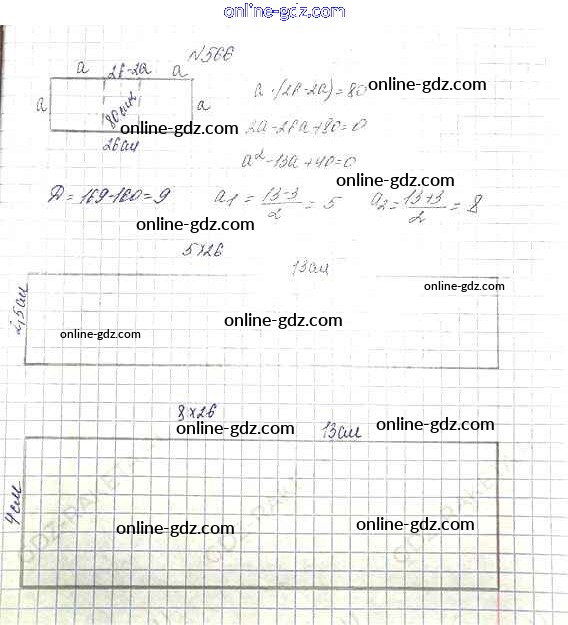 online-gdz.com
N566
a 2б-2а a
a·(2б-2а)=80
online-gdz.com
a 80 a
online-gdz.com
26см
2а-26а+80=0
a²-13a+40=0
online-gdz.com
D=169-160=9 a1=13-3/2=5 a2=13+3/2=8
online-gdz.com
5×26
13см
online-gdz.com
2,5см
online-gdz.com
online-gdz.com
8×26
online-gdz.com
13см
online-gdz.com
4см
online-gdz.com
online-gdz.com